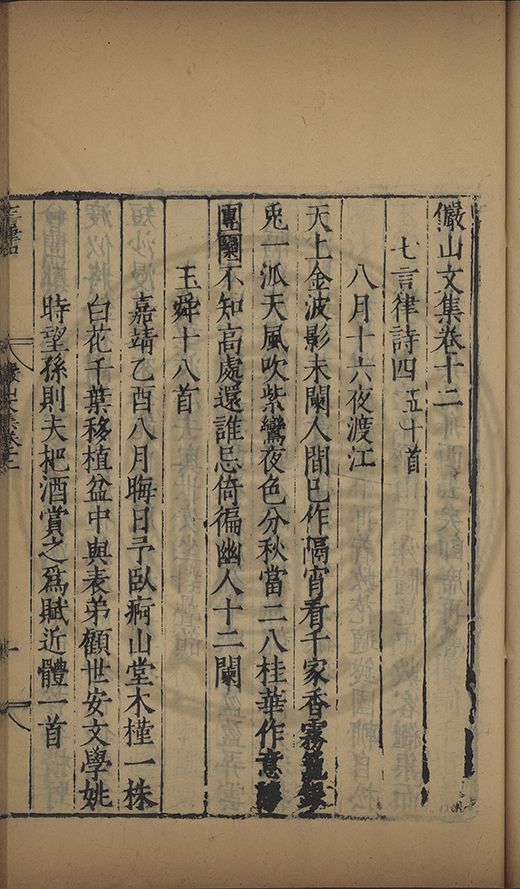 儼山文集卷十二
七言律詩四 五十首
八月十六夜渡江
天上金波影未闌人間已作隔宵看千家香霧
兎一泒天風吹紫鸞夜色分秋當二八桂華作意
團圝不知高處還誰忌倚徧幽人十二闌
玉舜十八首
嘉靖乙酉八月晦日予臥痾山堂木槿一株
白花千葉移植盆中與表弟顧世安文學姚
時望孫則夫把酒賞之爲賦近體一首